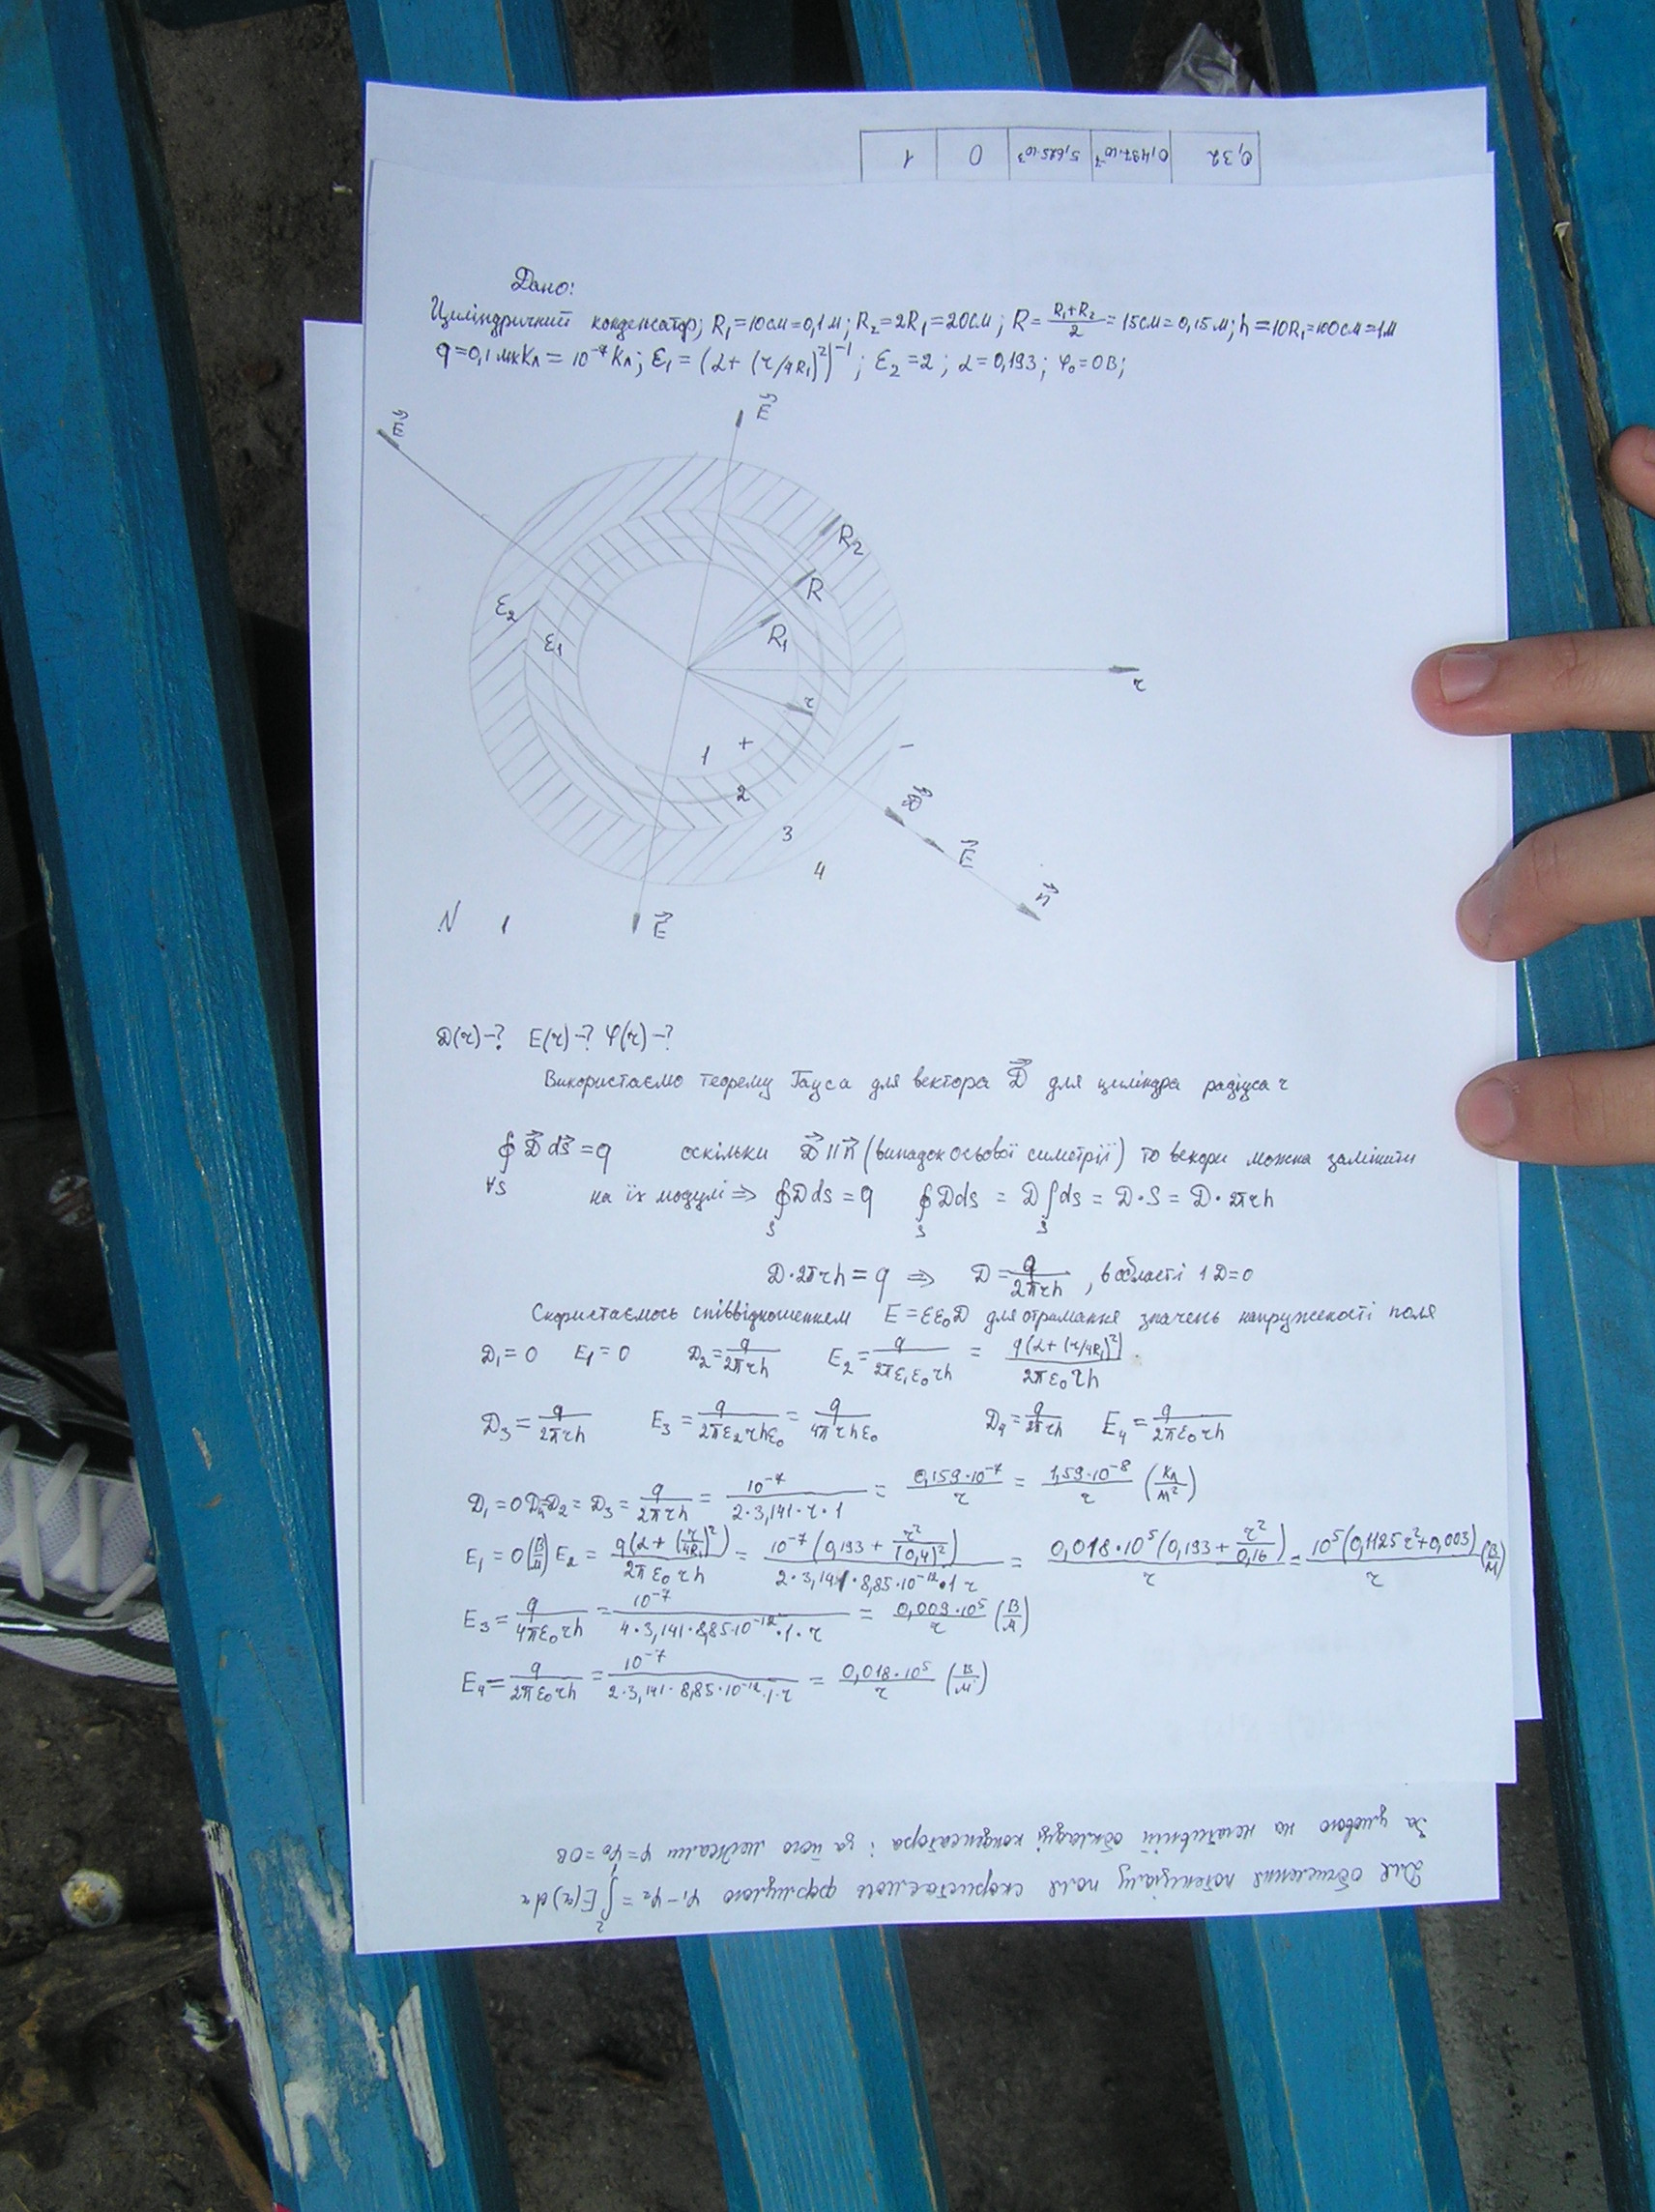 0,32 0,497·10⁻⁷ 5,625·10³ 0 1
Дано:
Циліндричний конденсатор; R₁=10см=0,1м; R₂=2R₁=20см; R=(R₁+R₂)/2=15см=0,15м; h=10R₁=100см=1м
q=0,1мкКл=10⁻⁷Кл; ε₁=(α+(r/4R₁)²)⁻¹; ε₂=2; α=0,193; φ₀=0В;
E⃗
E⃗
R₂
R
R₁
ε₂
ε₁
r
r
1 + −
2
3
4
D⃗
E⃗₁
n⃗
E⃗
N 1
D(r)-? E(r)-? φ(r)-?
Використаємо теорему Гауса для вектора D⃗ для циліндра радіуса r
∮D⃗ds⃗=q оскільки D⃗||n⃗ (випадок осьової симетрії) то векори можна замінити
∀S
на їх модулі ⇒ ∮Dds=q ∮Dds = D∫ds = D·S = D·2πrh
S S S
D·2πrh=q ⇒ D=q/(2πrh), в області 1 D=0
Скористаємось співвідношенням E=εε₀D для отримання значень напружекості поля
D₁=0 E₁=0 D₂=q/(2πrh) E₂=q/(2πε₁ε₀rh) = q(α+(r/4R₁)²)/(2πε₀rh)
D₃=q/(2πrh) E₃=q/(2πε₂rhε₀)=q/(4πrhε₀) D₄=q/(2πrh) E₄=q/(2πε₀rh)
D₁=0 D₄=D₂=D₃=q/(2πrh)=10⁻⁷/(2·3,141·r·1) = 0,159·10⁻⁷/r = 1,59·10⁻⁸/r (Кл/м²)
E₁=0(В/м) E₂=q(α+(r/4R₁)²)/(2πε₀rh) = 10⁻⁷(0,193+r²/(0,4)²)/(2·3,141·8,85·10⁻¹²·1r) = 0,018·10⁵(0,193+r²/0,16)/r = 10⁵(0,1125r²+0,003)/r (В/м)
E₃=q/(4πε₀rh)=10⁻⁷/(4·3,141·8,85·10⁻¹²·1·r) = 0,009·10⁵/r (В/м)
E₄=q/(2πε₀rh)=10⁻⁷/(2·3,141·8,85·10⁻¹²·1·r) = 0,018·10⁵/r (В/м)
Для обчислення потенціалу поля скористаємось формулою φ₁-φ₂=∫₁²E(r)dr
За умовою на негативній обкладці конденсатора і за його межами φ=φ₀=0В